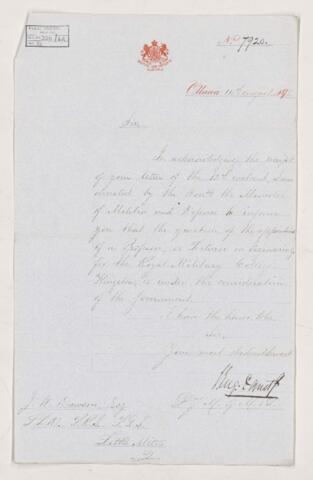 No 7920.
Ottawa 16 August 187
Sir
In acknowledging the receipt
of your letter of the 12th instant, I am
directed by the Honble the Minister
of Militia and Defence to inform
you that the question of the appointment
of a Professor, or Lecturer in
for the Royal Military College
Kingston, is under the consideration
of the Government.
I have the honor to be
Sir
Your most obedient servant
J. W. Dawson, Esq
LL.D. F.R.S. F.G.S.
Little Metis